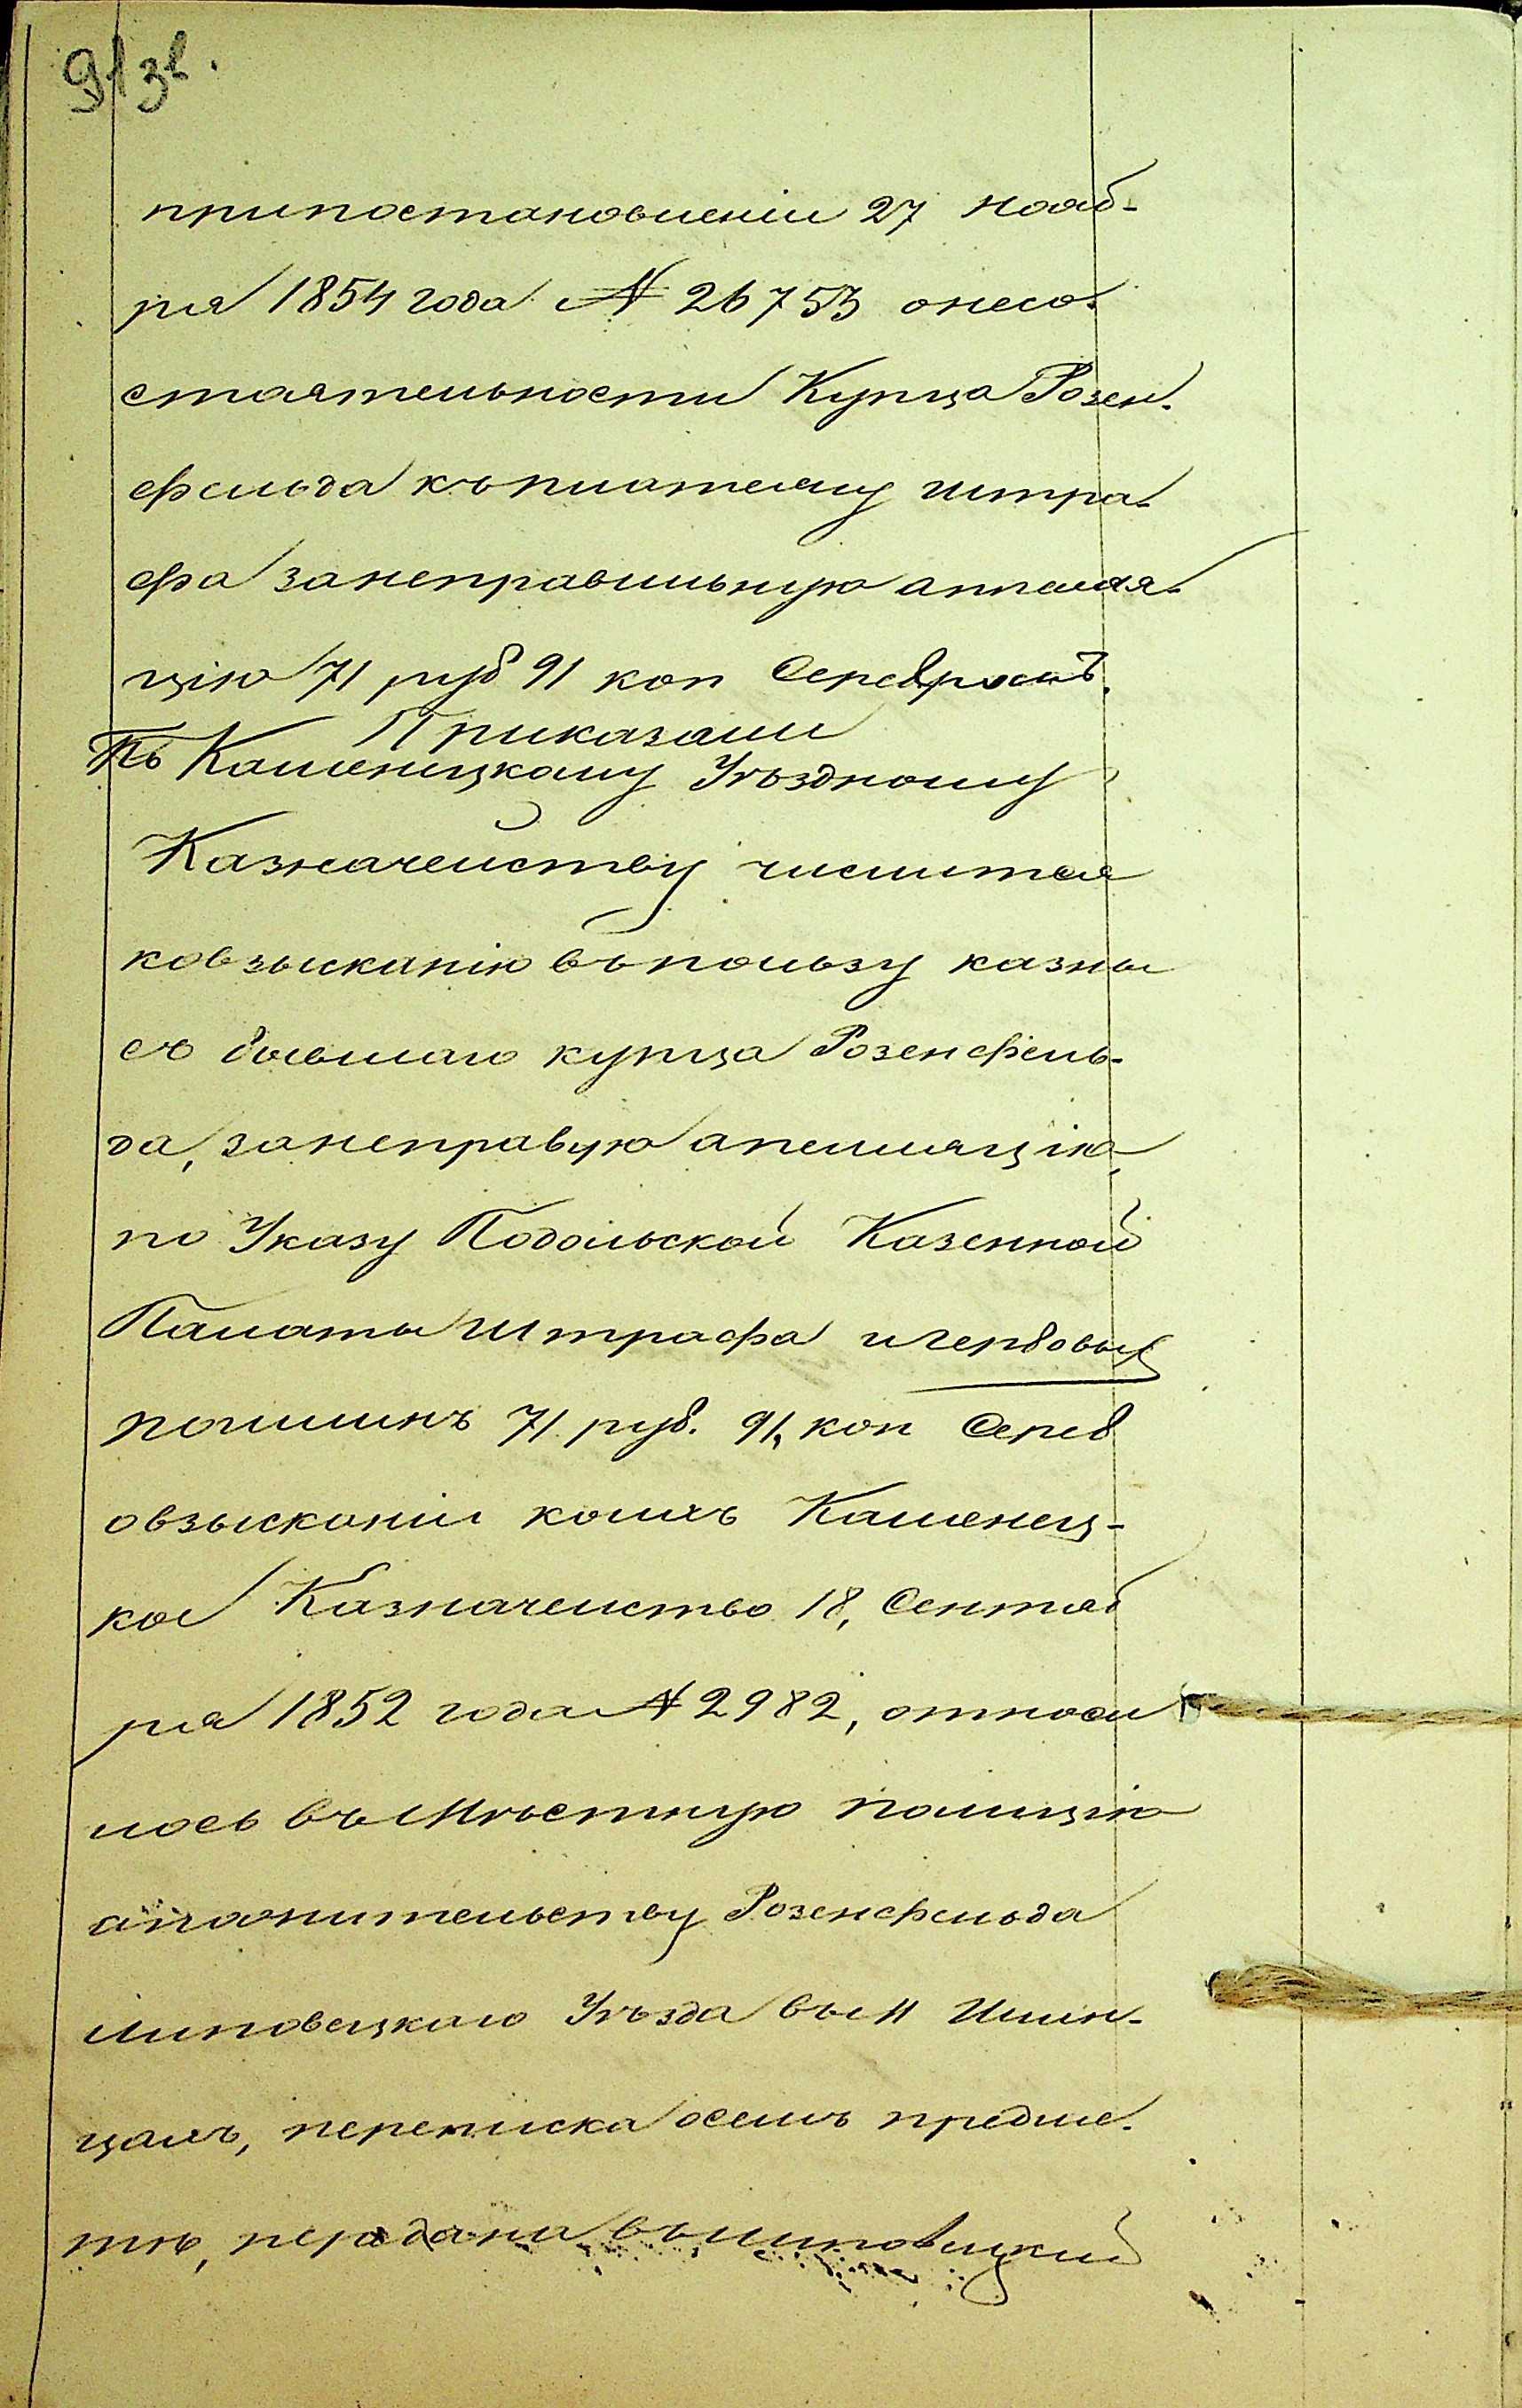 91 зв.
припостановленіи 27 нояб-
ря 1854 года № 26753 онесо-
стоятельности Купца Розен-
фельда къплатежу штра-
фа занеправильную аппеля-
цію 71 руб 91 коп Серебромъ.
Приказали
По Каменецкому Уѣздному
Казначейству числится
ковзысканію въпользу казны
съ бывшаго купца Розенфель-
да, занеправую апелляцію,
по Указу Подольской Казенной
Палаты штрафа игербовых
пошлинъ 71 руб. 91, коп Сереб
овзысканіи коихъ Каменец-
кое Казначейство 18, Сентяб
ря 1852 года № 2982, относи
лось въмѣстную полицію
апожительству Розенфельда
Липовецкаго Уѣзда въ М Илин-
цахъ, переписка осемъ предме-
тѣ, передана въЛиповецкій